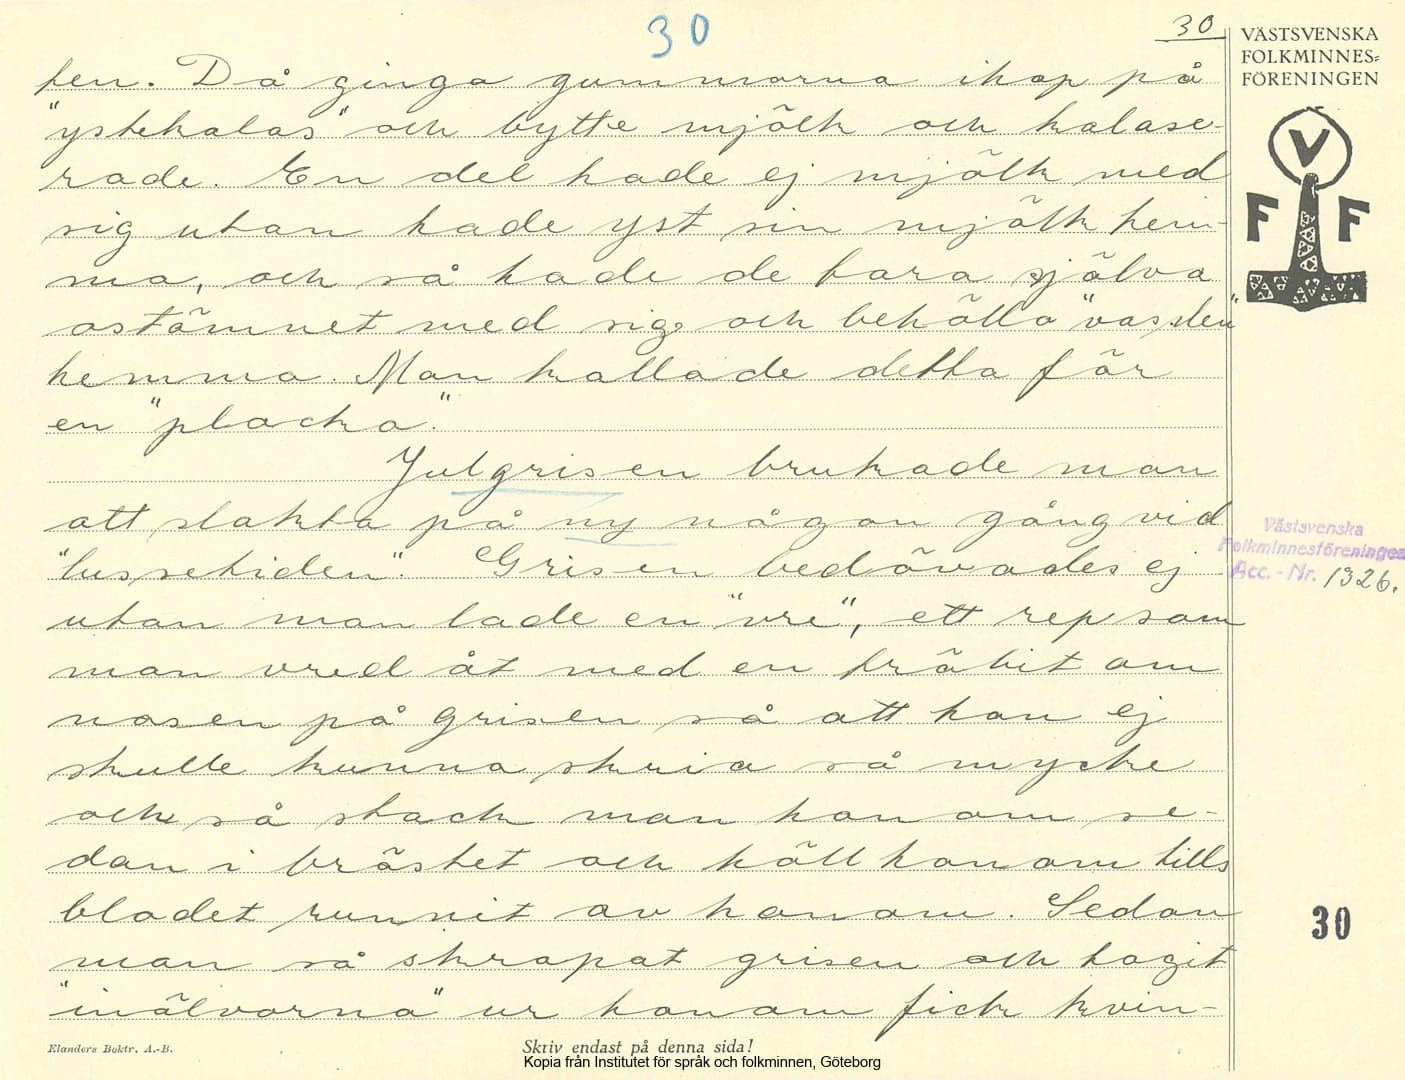 30
30
ten. Då ginga gummorna ihop på
"ystekalas" och bytte mjölk och kalase-
rade. En del hade ej mjölk med
sig utan hade yst sin mjölk hem-
ma, och så hade de bara själva
ostämnet med sig och behöllo "vasslen"
hemma. Man kallade detta för
en "plocka".
Julgrisen brukade man
att slakta på ny någon gång vid
"lussetiden". Grisen bedövades ej
utan man lade en "vre", ett rep som
man vred åt med en träbit om
nosen på grisen så att han ej
skulle kunna skria så mycke
och så stack man honom se-
dan i bröstet och höll honom tills
blodet runnit av honom. Sedan
man så skrapat grisen och tagit
"inälvorna" ur honom fick kvin-
VÄSTSVENSKA
FOLKMINNES=
FÖRENINGEN
V
F F
Västsvenska
Folkminnesföreningen
Acc.-Nr. 1326.
30
Elanders Boktr. A.-B.
Skriv endast på denna sida!
Kopia från Institutet för språk och folkminnen, Göteborg